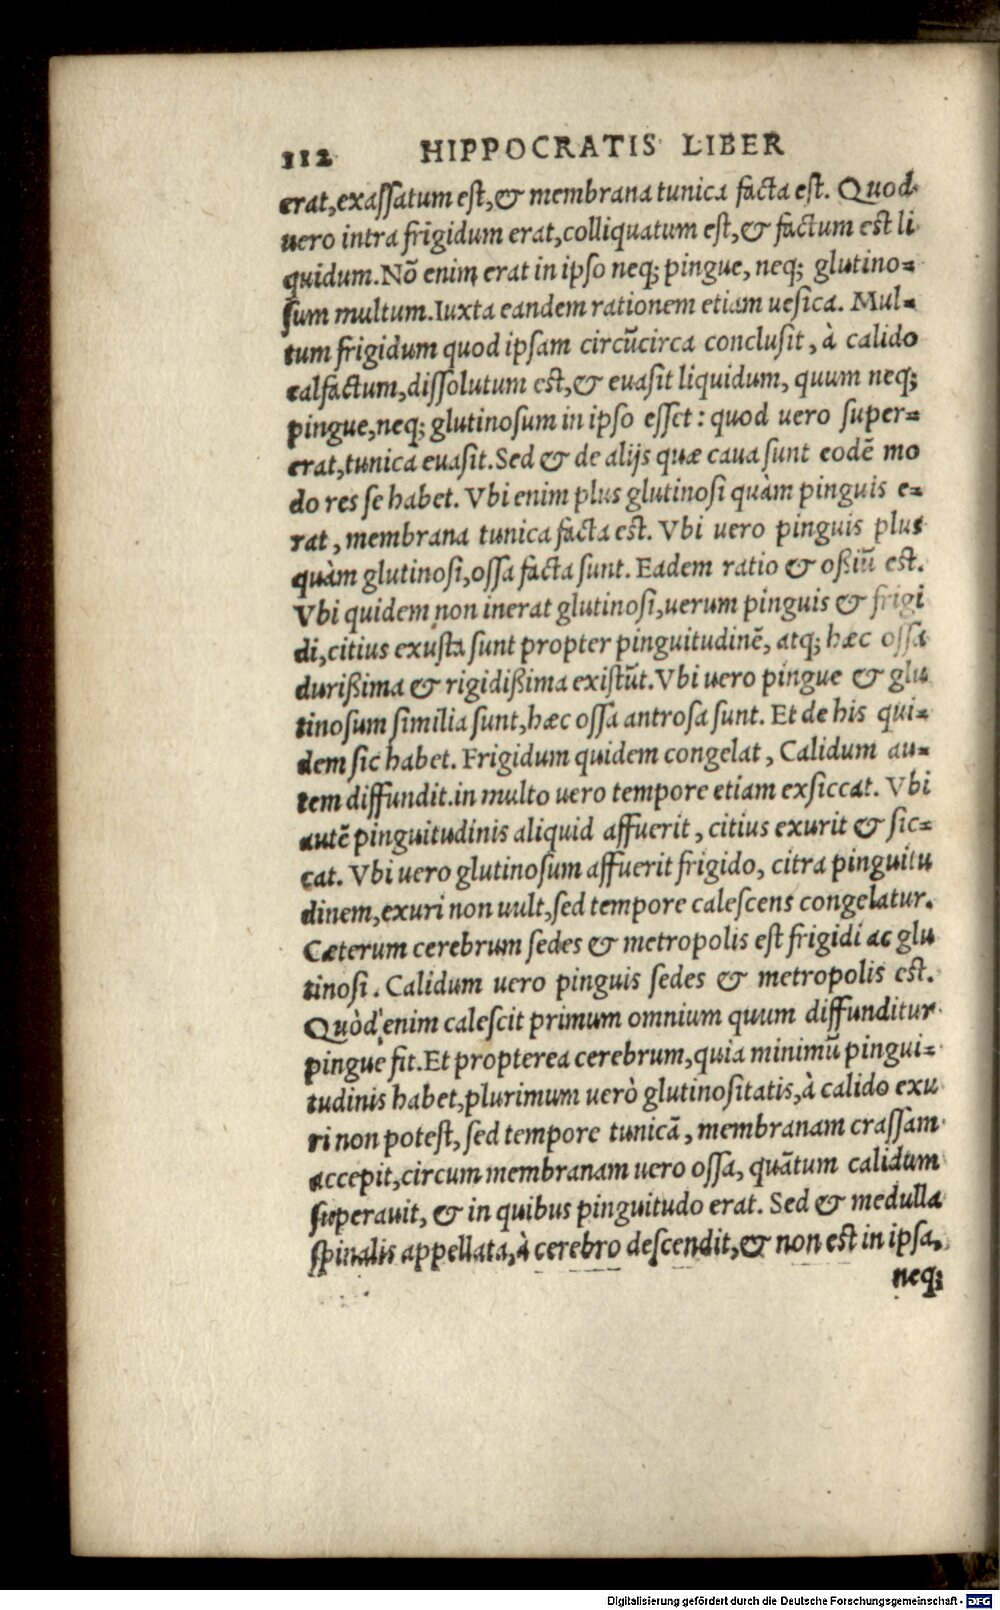 112 HIPPOCRATIS LIBER
erat,exaſſatum eſt,& membrana tunica facta eſt. Quod
uero intra frigidum erat,colliquatum eſt,& factum eſt li
quidum.Nō enim erat in ipſo neq; pingue, neq; glutino=
ſum multum.Iuxta eandem rationem etiam ueſica. Mul=
tum frigidum quod ipſam circūcirca concluſit, à calido
calfactum,diſſolutum eſt,& euaſit liquidum, quum neq;
pingue,neq; glutinoſum in ipſo eſſet: quod uero ſuper=
erat,tunica euaſit.Sed & de alijs quæ caua ſunt eodē mo
do res ſe habet. Vbi enim plus glutinoſi quàm pinguis e=
rat, membrana tunica facta eſt. Vbi uero pinguis plus
quàm glutinoſi,oſſa facta ſunt. Eadem ratio & oßiū eſt.
Vbi quidem non inerat glutinoſi,uerum pinguis & frigi
di,citius exuſta ſunt propter pinguitudinē, atq; hæc oſſa
durißima & rigidißima exiſtūt.Vbi uero pingue & glu
tinoſum ſimilia ſunt,hæc oſſa antroſa ſunt. Et de his qui=
dem ſic habet. Frigidum quidem congelat, Calidum au=
tem diffundit.in multo uero tempore etiam exſiccat. Vbi
autē pinguitudinis aliquid affuerit, citius exurit & ſic=
cat. Vbi uero glutinoſum affuerit frigido, citra pinguitu
dinem,exuri non uult,ſed tempore caleſcens congelatur.
Cæterum cerebrum ſedes & metropolis eſt frigidi ac glu
tinoſi. Calidum uero pinguis ſedes & metropolis eſt.
Quòd enim caleſcit primum omnium quum diffunditur
pingue fit.Et propterea cerebrum,quia minimū pingui=
tudinis habet,plurimum uerò glutinoſitatis,à calido exu
ri non poteſt, ſed tempore tunicā, membranam craſſam
accepit,circum membranam uero oſſa, quātum calidum
ſuperauit, & in quibus pinguitudo erat. Sed & medulla
ſpinalis appellata,à cerebro deſcendit,& non eſt in ipſa,
neq;
Digitalisierung gefördert durch die Deutsche Forschungsgemeinschaft - DFG